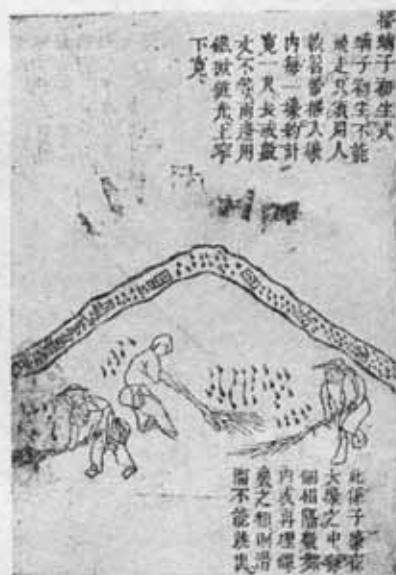 蝻子初生式
蝻子初生不能
飛走只須用人
執箒掃入壕
內每一壕約計
寬一尺長或數
丈不等兩邊用
鐵鍁鏟光上窄
下寬
此係子壕在
大壕之中每
個相隔數
內或再埋
之類則滑
溜不能跳出